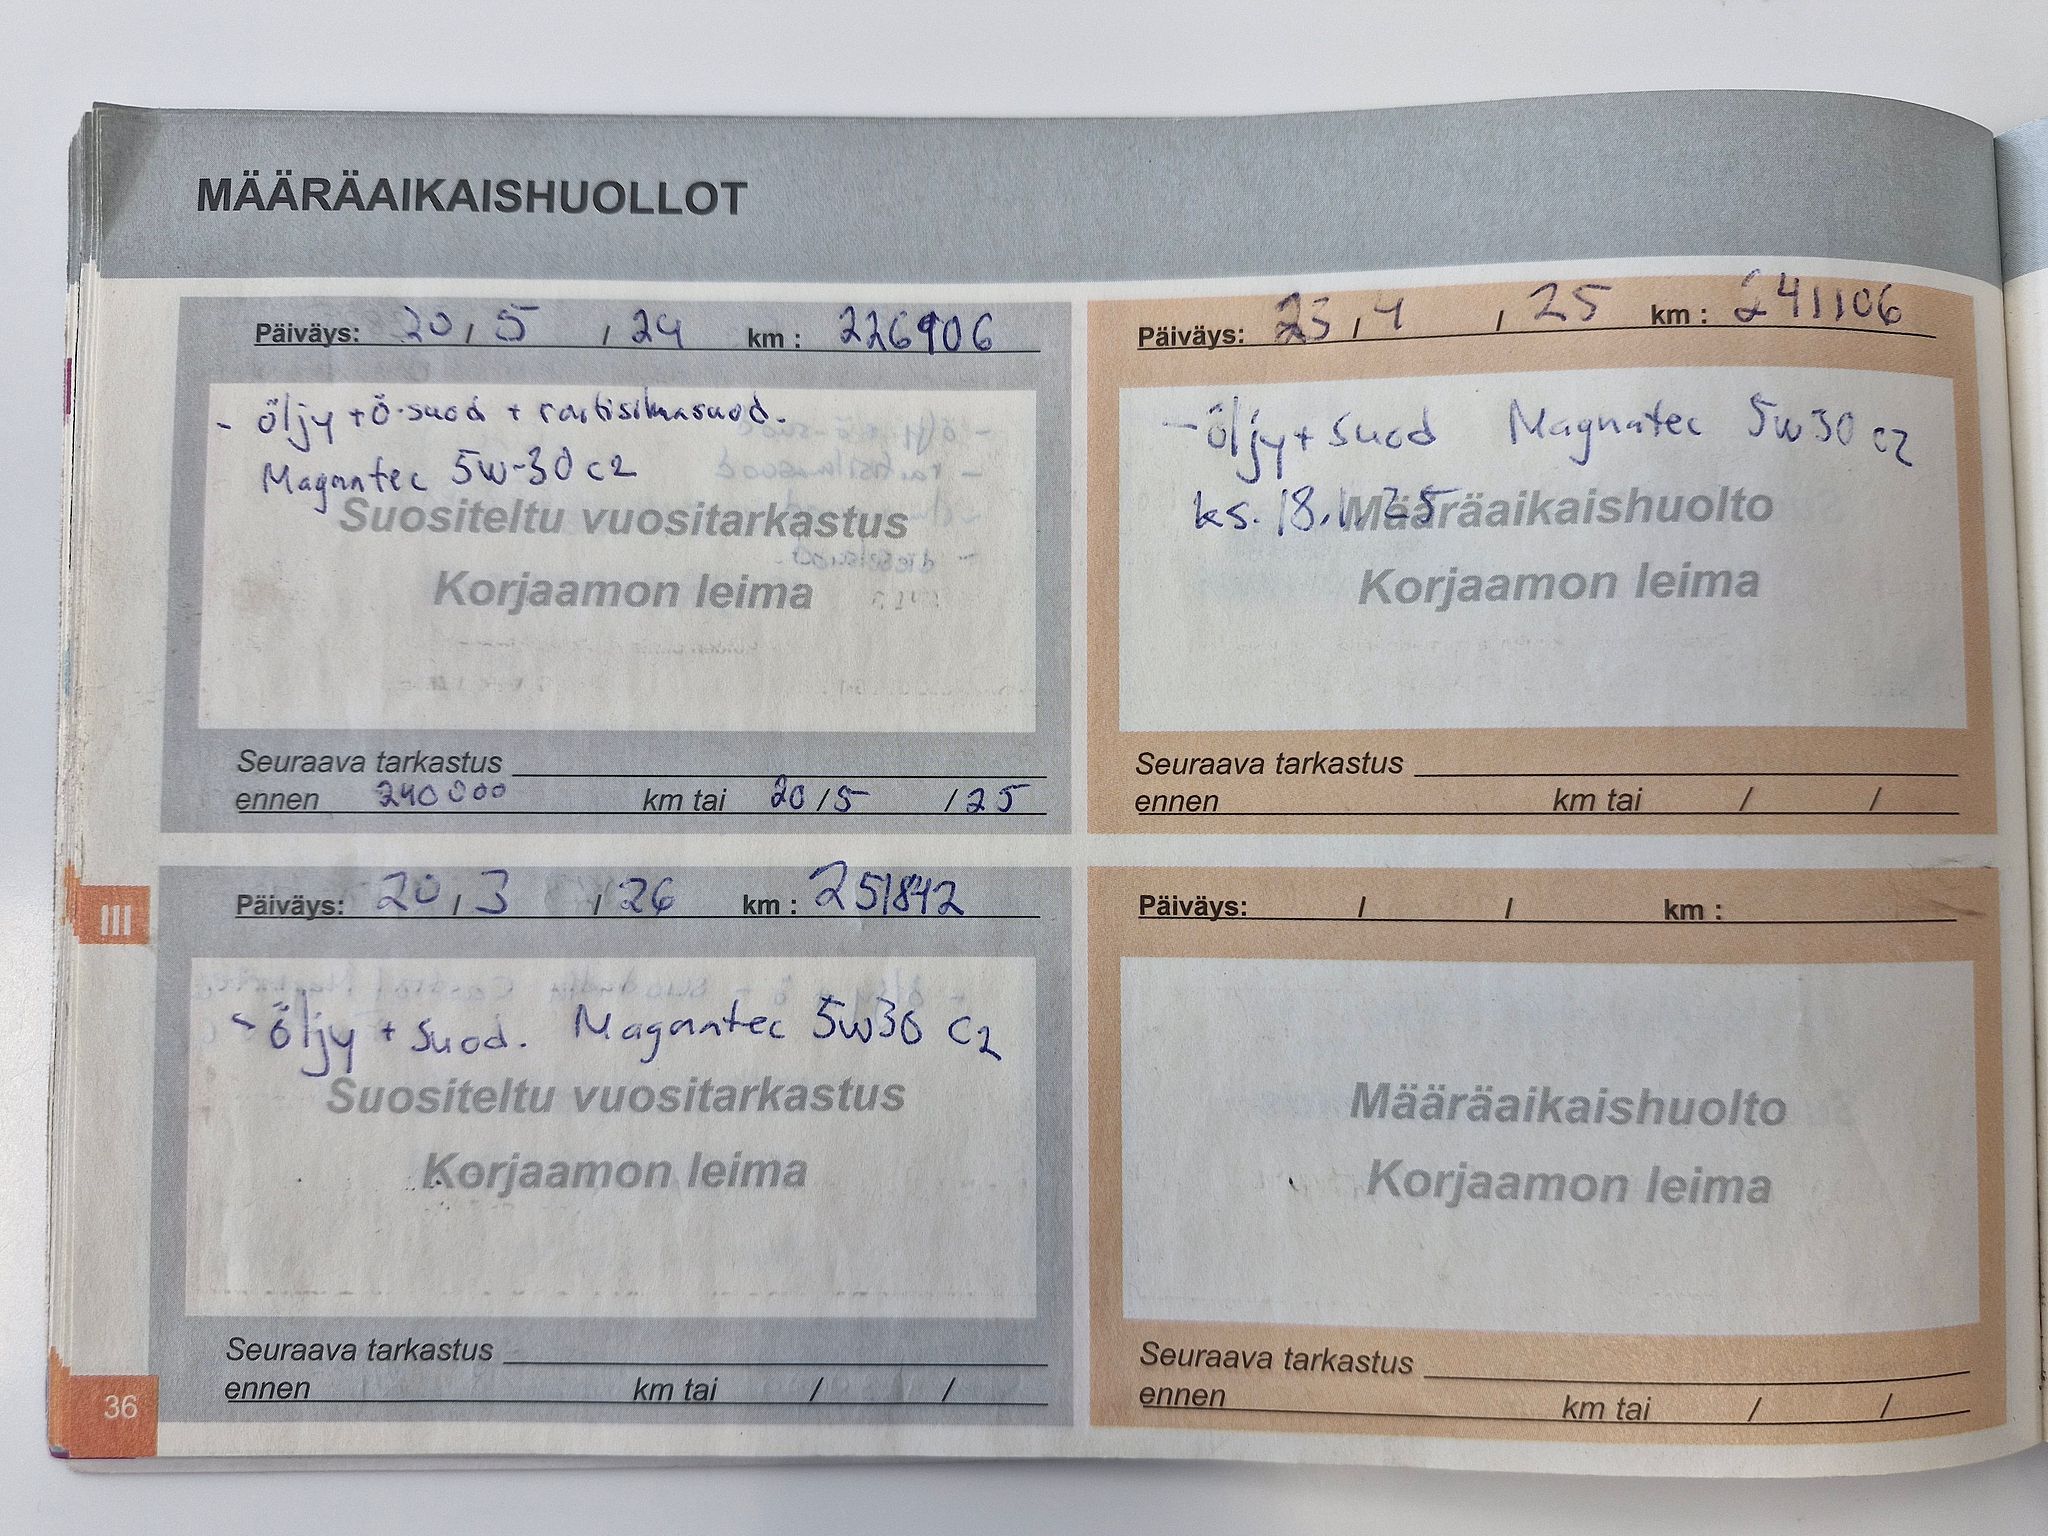 MÄÄRÄAIKAISHUOLLOT
Päiväys: 20 / 5 / 24 km : 226906
- öljy + ö-suod + raitisilmasuod.
Magnatec 5w-30 c2
Suositeltu vuositarkastus
Korjaamon leima
Seuraava tarkastus
ennen 240000 km tai 20 / 5 / 25
Päiväys: 23 / 4 / 25 km : 241106
- öljy + suod Magnatec 5w30 c2
ks. 18.1.25
Määräaikaishuolto
Korjaamon leima
Seuraava tarkastus
ennen km tai / /
Päiväys: 20 / 3 / 26 km : 251842
- öljy + suod. Magnatec 5w30 C2
Suositeltu vuositarkastus
Korjaamon leima
Seuraava tarkastus
ennen km tai / /
Päiväys: / / km :
Määräaikaishuolto
Korjaamon leima
Seuraava tarkastus
ennen km tai / /
III
36